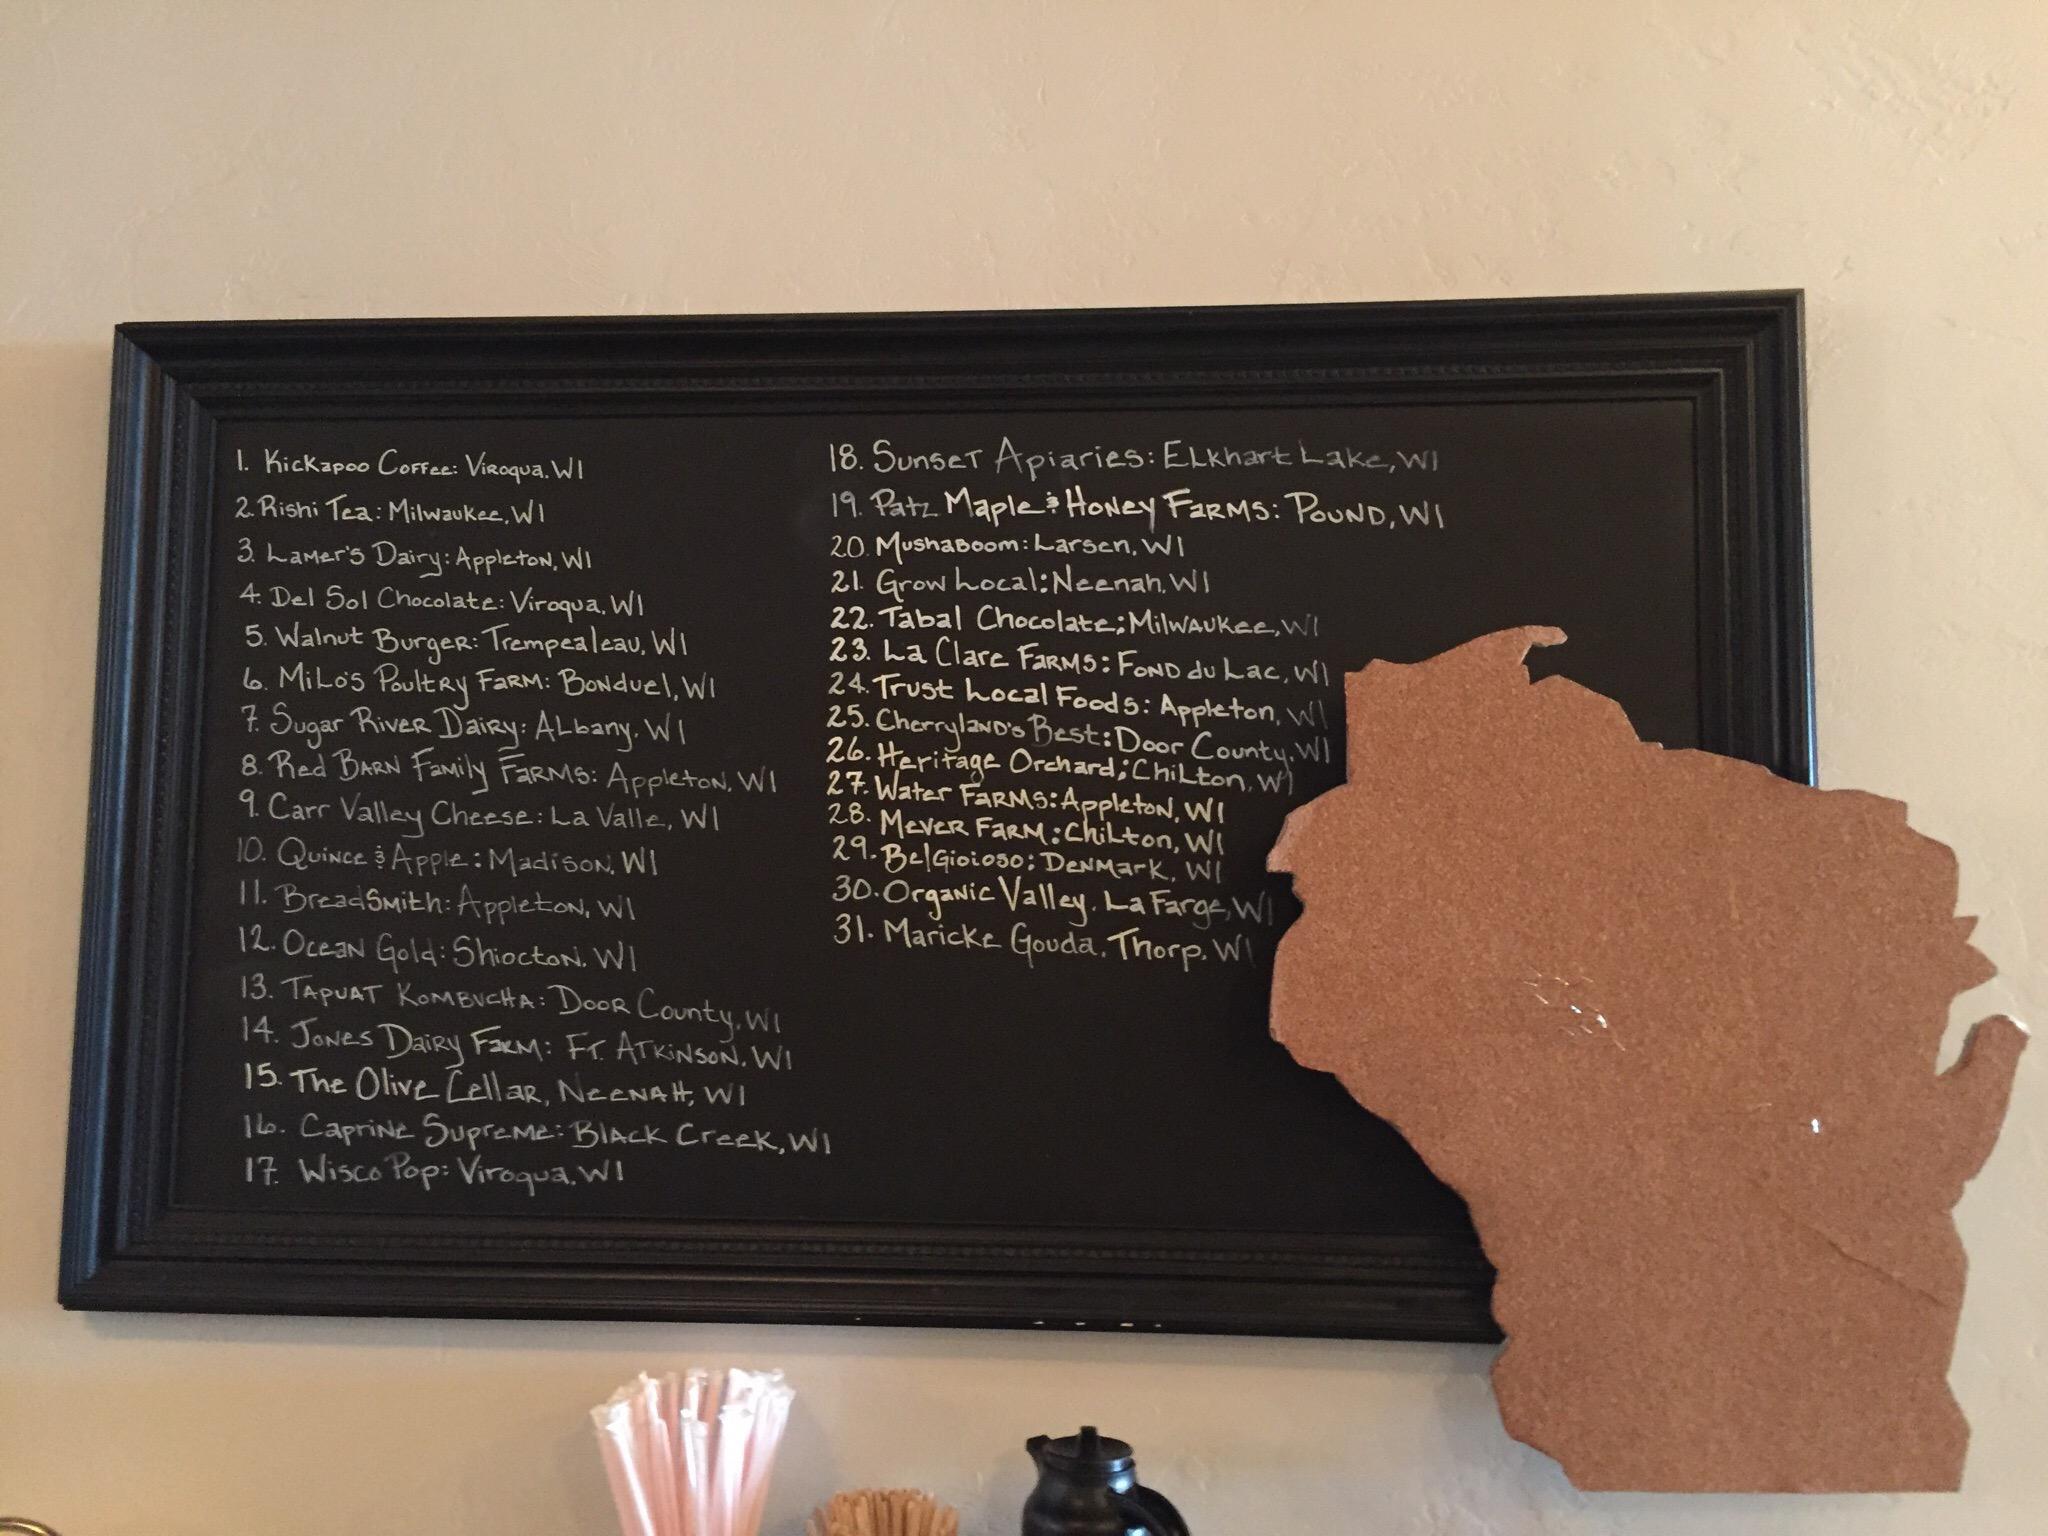 1. Kickapoo Coffee: Viroqua, WI
2. Rishi Tea: Milwaukee, WI
3. Lamer's Dairy: Appleton, WI
4. Del Sol Chocolate: Viroqua, WI
5. Walnut Burger: Trempealeau, WI
6. Milo's Poultry Farm: Bonduel, WI
7. Sugar River Dairy: Albany, WI
8. Red Barn Family Farms: Appleton, WI
9. Carr Valley Cheese: La Valle, WI
10. Quince & Apple: Madison, WI
11. BreadSmith: Appleton, WI
12. Ocean Gold: Shiocton, WI
13. Tapuat Kombucha: Door County, WI
14. Jones Dairy Farm: Ft. Atkinson, WI
15. The Olive Cellar, Neenah, WI
16. Caprine Supreme: Black Creek, WI
17. Wisco Pop: Viroqua, WI
18. Sunset Apiaries: Elkhart Lake, WI
19. Patz Maple & Honey Farms: Pound, WI
20. Mushaboom: Larsen, WI
21. Grow Local: Neenah, WI
22. Tabal Chocolate; Milwaukee, WI
23. La Clare Farms: Fond du Lac, WI
24. Trust Local Foods: Appleton, WI
25. Cherryland's Best: Door County, WI
26. Heritage Orchard; Chilton, WI
27. Water Farms: Appleton, WI
28. Meyer Farm: Chilton, WI
29. BelGioioso; Denmark, WI
30. Organic Valley. La Farge, WI
31. Maricke Gouda. Thorp, WI